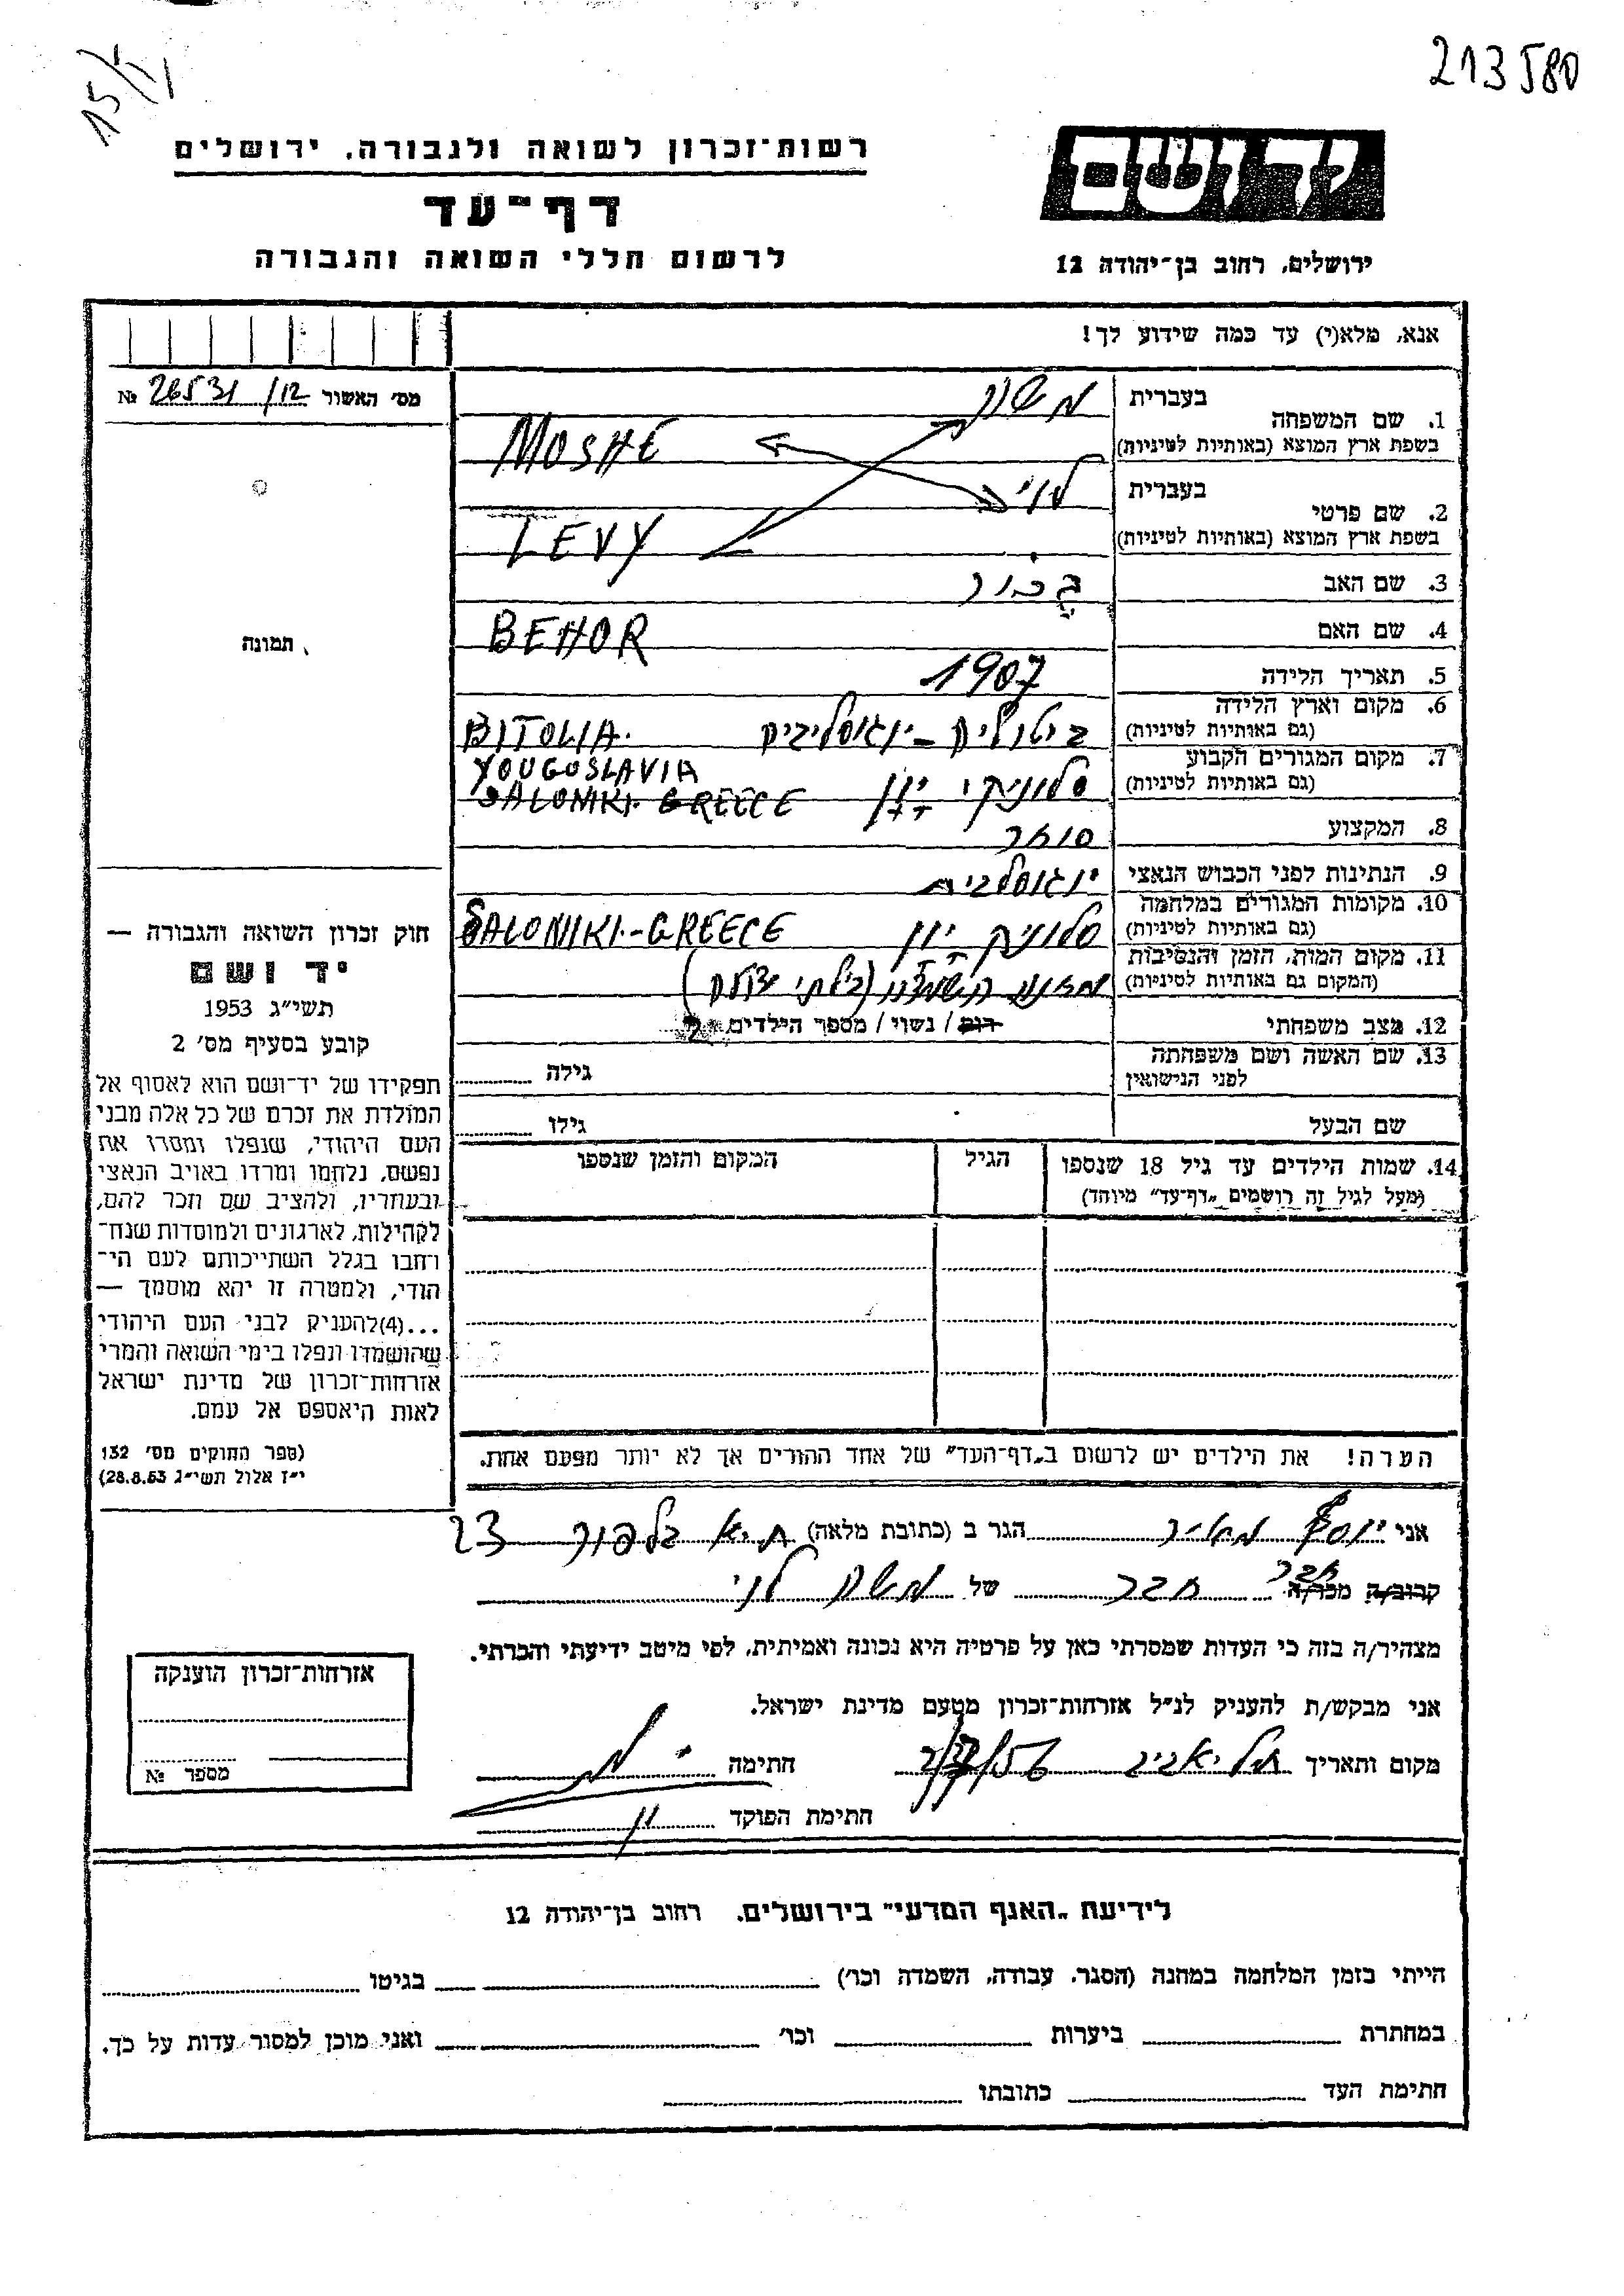 213580
15/
רשות־זכרון לשואה ולגבורה, ירושלים
יד ושם
דף־עד
לרשום חללי השואה והגבורה
ירושלים, רחוב בן־יהודה 12
אנא, מלא(י) עד כמה שידוע לך!
מס׳ האשור 26531/12 №
1. שם המשפחה
בעברית משה
בשפת ארץ המוצא (באותיות לטיניות) MOSHE
2. שם פרטי
בעברית לוי
בשפת ארץ המוצא (באותיות לטיניות) LEVY
3. שם האב בכור
4. שם האם BEHOR
תמונה
5. תאריך הלידה 1907
6. מקום וארץ הלידה
(גם באותיות לטיניות) ביטוליה - יוגוסלביה BITOLIA. YOUGOSLAVIA
7. מקום המגורים הקבוע
(גם באותיות לטיניות) סלוניקי יון SALONIKI. GREECE
8. המקצוע סוחר
9. הנתינות לפני הכבוש הנאצי יוגוסלבית
10. מקומות המגורים במלחמה
(גם באותיות לטיניות) סלוניקי יון SALONIKI-GREECE
11. מקום המות, הזמן והנסיבות
(המקום גם באותיות לטיניות) מחנות השמדה (בילתי ידוע)
12. מצב משפחתי רוק / נשוי / מספר הילדים 2
13. שם האשה ושם משפחתה
לפני הנישואין גילה
שם הבעל גילו
14. שמות הילדים עד גיל 18 שנספו הגיל המקום והזמן שנספו
(מעל לגיל זה רושמים „דף־עד” מיוחד)
הערה! את הילדים יש לרשום ב„דף־העד” של אחד ההורים אך לא יותר מפעם אחת.
חוק זכרון השואה והגבורה —
יד ושם
תשי״ג 1953
קובע בסעיף מס׳ 2
תפקידו של יד־ושם הוא לאסוף אל
המולדת את זכרם של כל אלה מבני
העם היהודי, שנפלו ומסרו את
נפשם, נלחמו ומרדו באויב הנאצי
ובעוזריו, ולהציב שם וזכר להם,
לקהילות, לארגונים ולמוסדות שנח־
רחבו בגלל השתייכותם לעם הי־
הודי, ולמטרה זו יהא מוסמך —
...(4)להעניק לבני העם היהודי
שהושמדו ונפלו בימי השואה והמרי
אזרחות־זכרון של מדינת ישראל
לאות היאספם אל עמם.
(ספר החוקים מס׳ 132
י״ז אלול תשי״ג 28.8.53)
אני יוסף מאיר הגר ב (כתובת מלאה) ת״א בלפור 23
קרוב/ה מכר/ה חבר חבר של משה לוי
מצהיר/ה בזה כי העדות שמסרתי כאן על פרטיה היא נכונה ואמיתית, לפי מיטב ידיעתי והכרתי.
אני מבקש/ת להעניק לנ״ל אזרחות־זכרון מטעם מדינת ישראל.
מקום ותאריך תל אביב חתימה
חתימת הפוקד
אזרחות־זכרון הוענקה
מספר №
לידיעת „האגף המדעי” בירושלים, רחוב בן־יהודה 12
הייתי בזמן המלחמה במחנה (הסגר, עבודה, השמדה וכו׳) בגיטו
במחתרת ביערות וכו׳ ואני מוכן למסור עדות על כך.
חתימת העד כתובתו